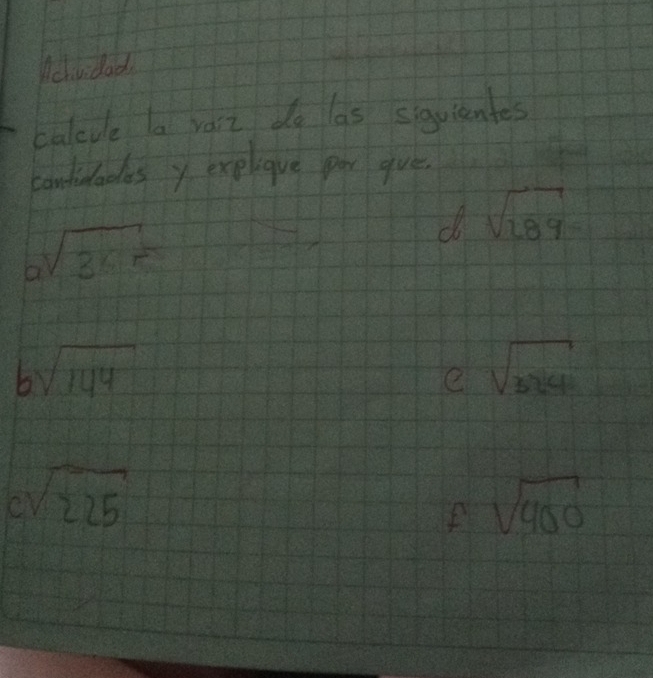 Actividad.
calcule la raiz de las siguientes
cantidades y explique por que.
a √36 =
d √289
b √144
e √324
c √225
f √400